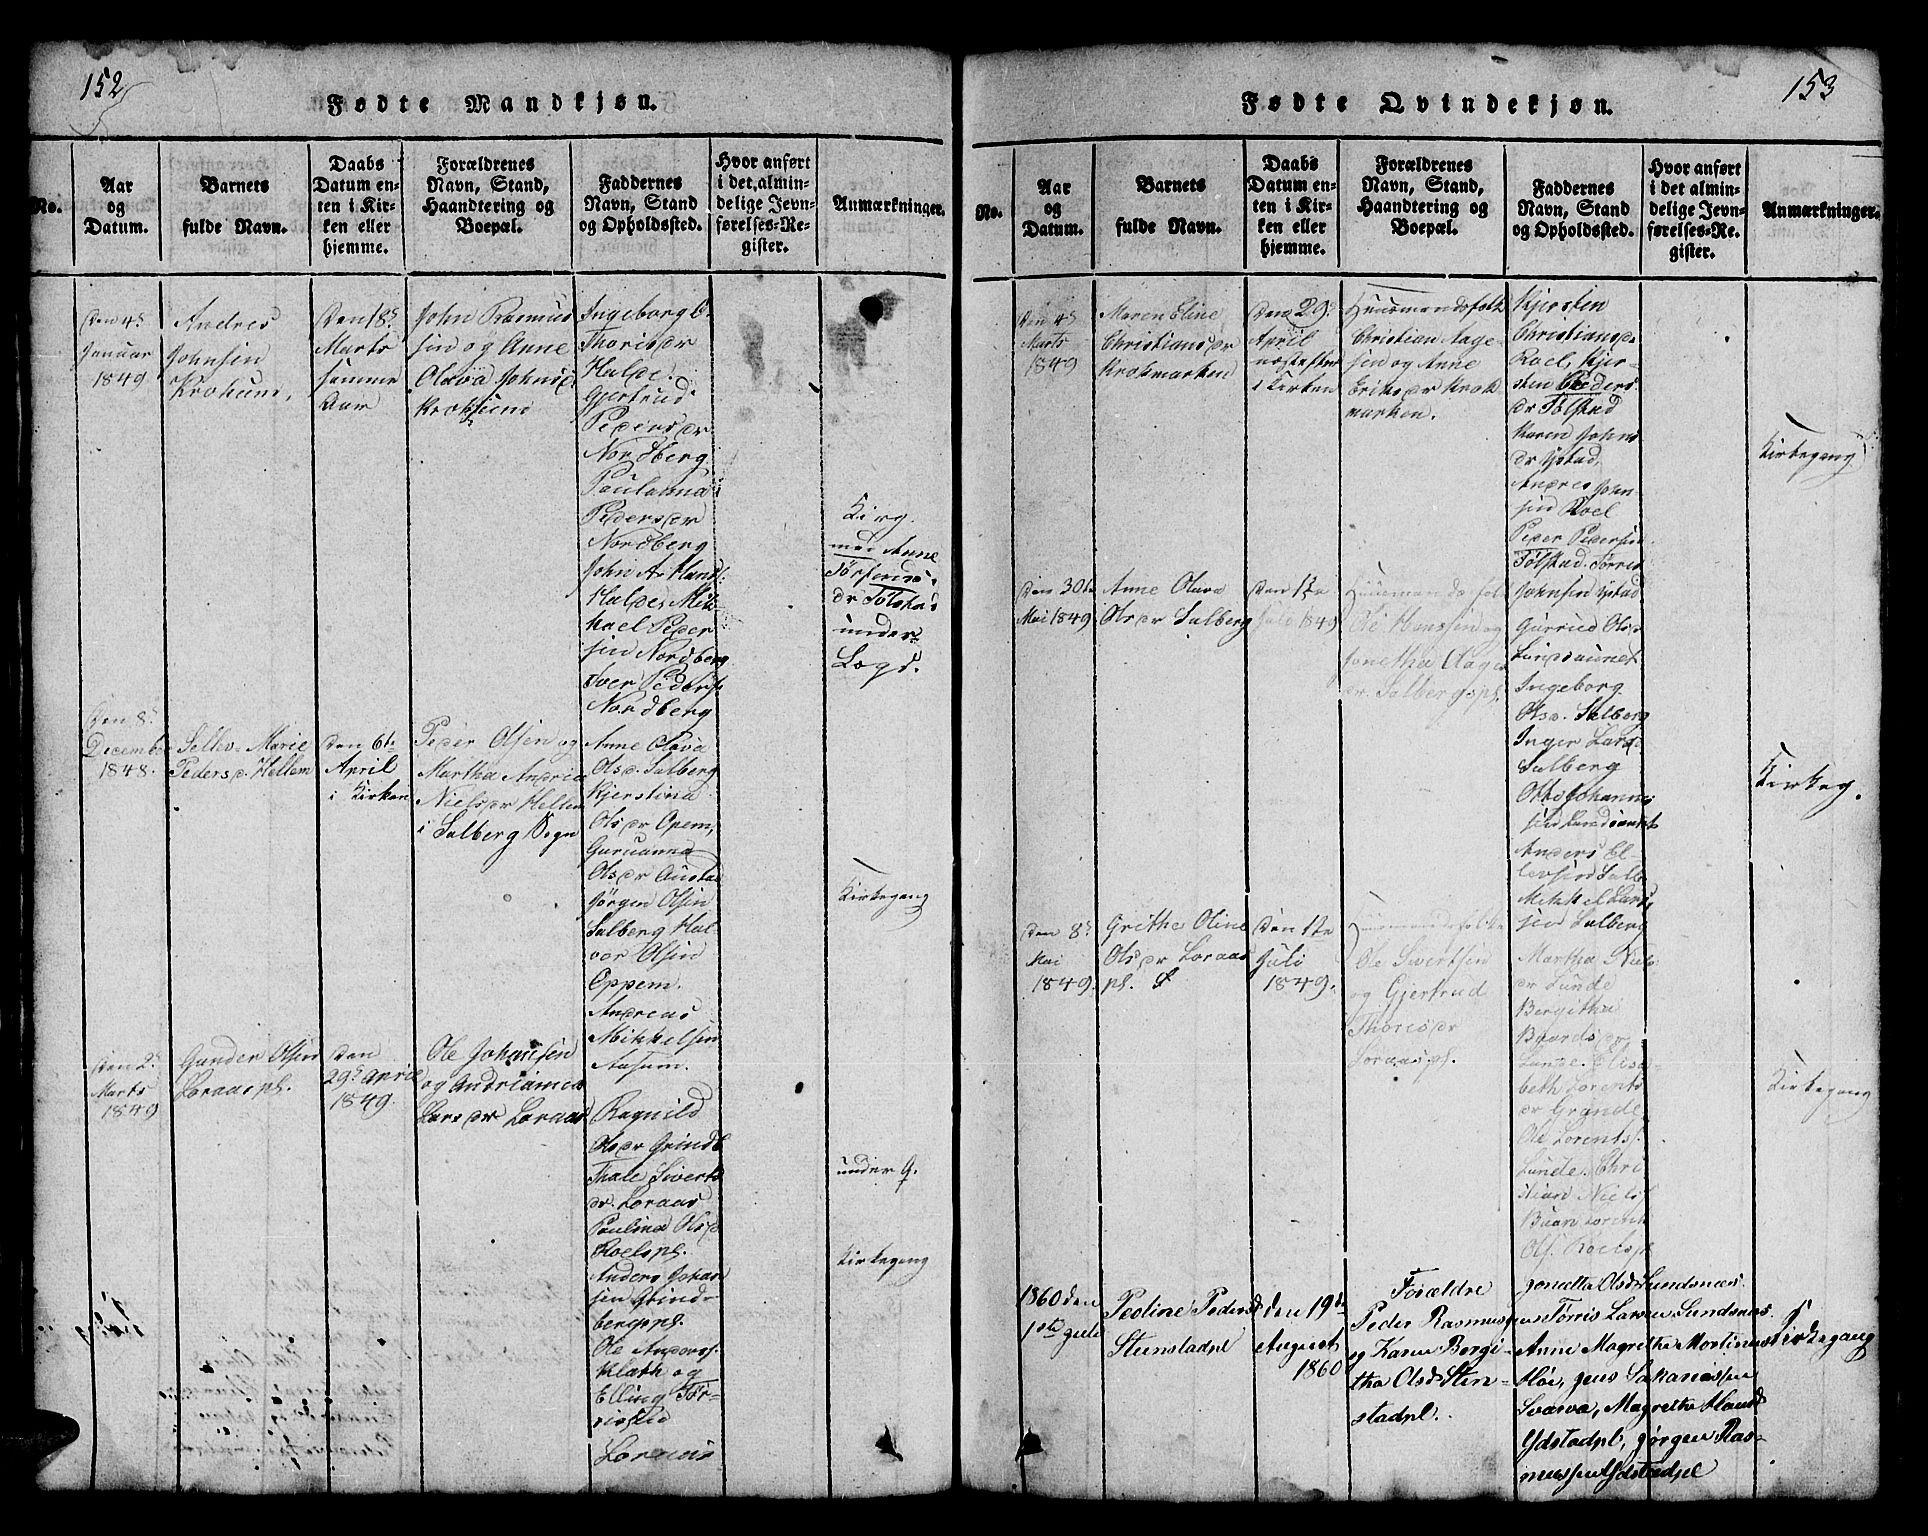 152
Fødte Mandkjøn.
No.
Aar
og
Datum.
Barnets
fulde Navn.
Daabs
Datum en-
ten i Kir-
ken eller
hjemme.
Forældrenes
Navn, Stand,
Haandtering og
Boepæl.
Faddernes
Navn, Stand
og Opholdssted.
Hvor anført
i det almin-
delige Jevn-
førelses-Re-
gister.
Anmærkninger.
Den 4de
Januar
1849
Andres
Johnsen
Kroksum,
Den 18de
Marts
samme
Aar
John Rasmus
sen og Anne
Olava Johnsd
Ingeborg
Thorisdr
Halde.
Gjertrud
Pedersdr
Nordberg
Paulanna
Pedersdr
Nordberg
John
Halde, Mik-
kael Peder
sen Nordberg
Iver Peders
Nordberg
Kirg.
med Anne
dr Tølstad
under
Logd.
Den 8de
Decembe
1848.
Sellev Marie
Pedersd. Hellem
Den 6te
April
i Kirken
Peder Olsen og
Martha Andrea
Nielsdr Hellem
i Salberg Sogn
Anne Olava
Olsd. Salberg
Kjerstina
Olsdr Opem,
Guruanna
Olsdr Austad
Jørgen Olsen
Salberg Hal-
vor Olsen
Oppem.
Andreas
Mikkelsen
Aasum.
Kirkegang
Den 2de
Marts
1849
Gunder Olsen
Loraaspl.
Den
29de April
1849.
Ole Johansen
og Andrianna
Larsdr Loraas
Ragnild
Olsdr Grindb
Thale Siverts
dr. Loraas
Paulina Olsd
Roelspl.
Anders Johan
sen Grind-
bergspl.
Ole Anders.
Klæth og
Elling Tør-
risen
Loraas
under G.
Kirkegang
153
Fødte Qvindekjøn.
No.
Aar
og
Datum.
Barnets
fulde Navn.
Daabs
Datum en-
ten i Kir-
ken eller
hjemme.
Forældrenes
Navn, Stand,
Haandtering og
Boepæl.
Faddernes
Navn, Stand
og Opholdssted.
Hvor anført
i det almin-
delige Jevn-
førelses-Re-
gister.
Anmærkninger.
Den 4de
Marts
1849
Maren Eline
Christiansdr
Krokmarken
Den 29de
April
næstefter
i Kirken
Huusmandsfolk
Christian Aage-
sen og Anne
Eriksdr Krok
marken.
Kjersten
Christiansdr
Roel, Kjer-
sten Peders
dr Tølstad
Karen Johns
dr Ystad,
Andres John-
sen Roel
Peder Pedersen
Tølstad. Tørris
Johnsen Ystad
Kirkegang
Den 30te
Mai 1849
Anne Olava
Olsdr Salberg
Den 1te
Juli 1849
Huusmandsfolk
Ole Hanssen og
Jonetha Aage
dr. Salbergspl.
Gurrud Olsd
Lundsaunet
Ingeborg
Olsd. Salberg
Inger Larsd
Salberg
Otto Johannes
sen Lundsaunet
Anders El-
levsen Salb
Mikkel Lars
sen Salberg
Kirkeg.
Den 8de
Mai
1849
Grethe Oline
Olsdr Loraas
pl.
Den 1te
Juli
1849.
Huusmandsfolk
Ole Sivertsen
og Gjertrud
Thorisdr
Loraaspl.
Martha Niels
dr Lunde
Bergitha
Baardsdr
Lunde. Elisa-
beth Lorents
dr Grande
Ole Lorents.
Lunde. Chri
stian Niels
Buan Lorents
Ols. Roelspl
Kirkegang
1860 den
1ste Juli
Peoline Pedersd
Stenstadpl
den 19de
August
1860
Forældre
Peder Rasmussen
og Karen Bergi-
tha Olsd Sten-
stadpl.
Jonetta Olsd Sundsnæs.
Tørris Larsen Sundsnæs.
Anne Magrethe Mortinusd
Høe, Jens Johanissen
Svarva, Magrethe Hansd
Ydstadpl, Jørgen Ras-
mussen Ydstadpl
Kirkegang